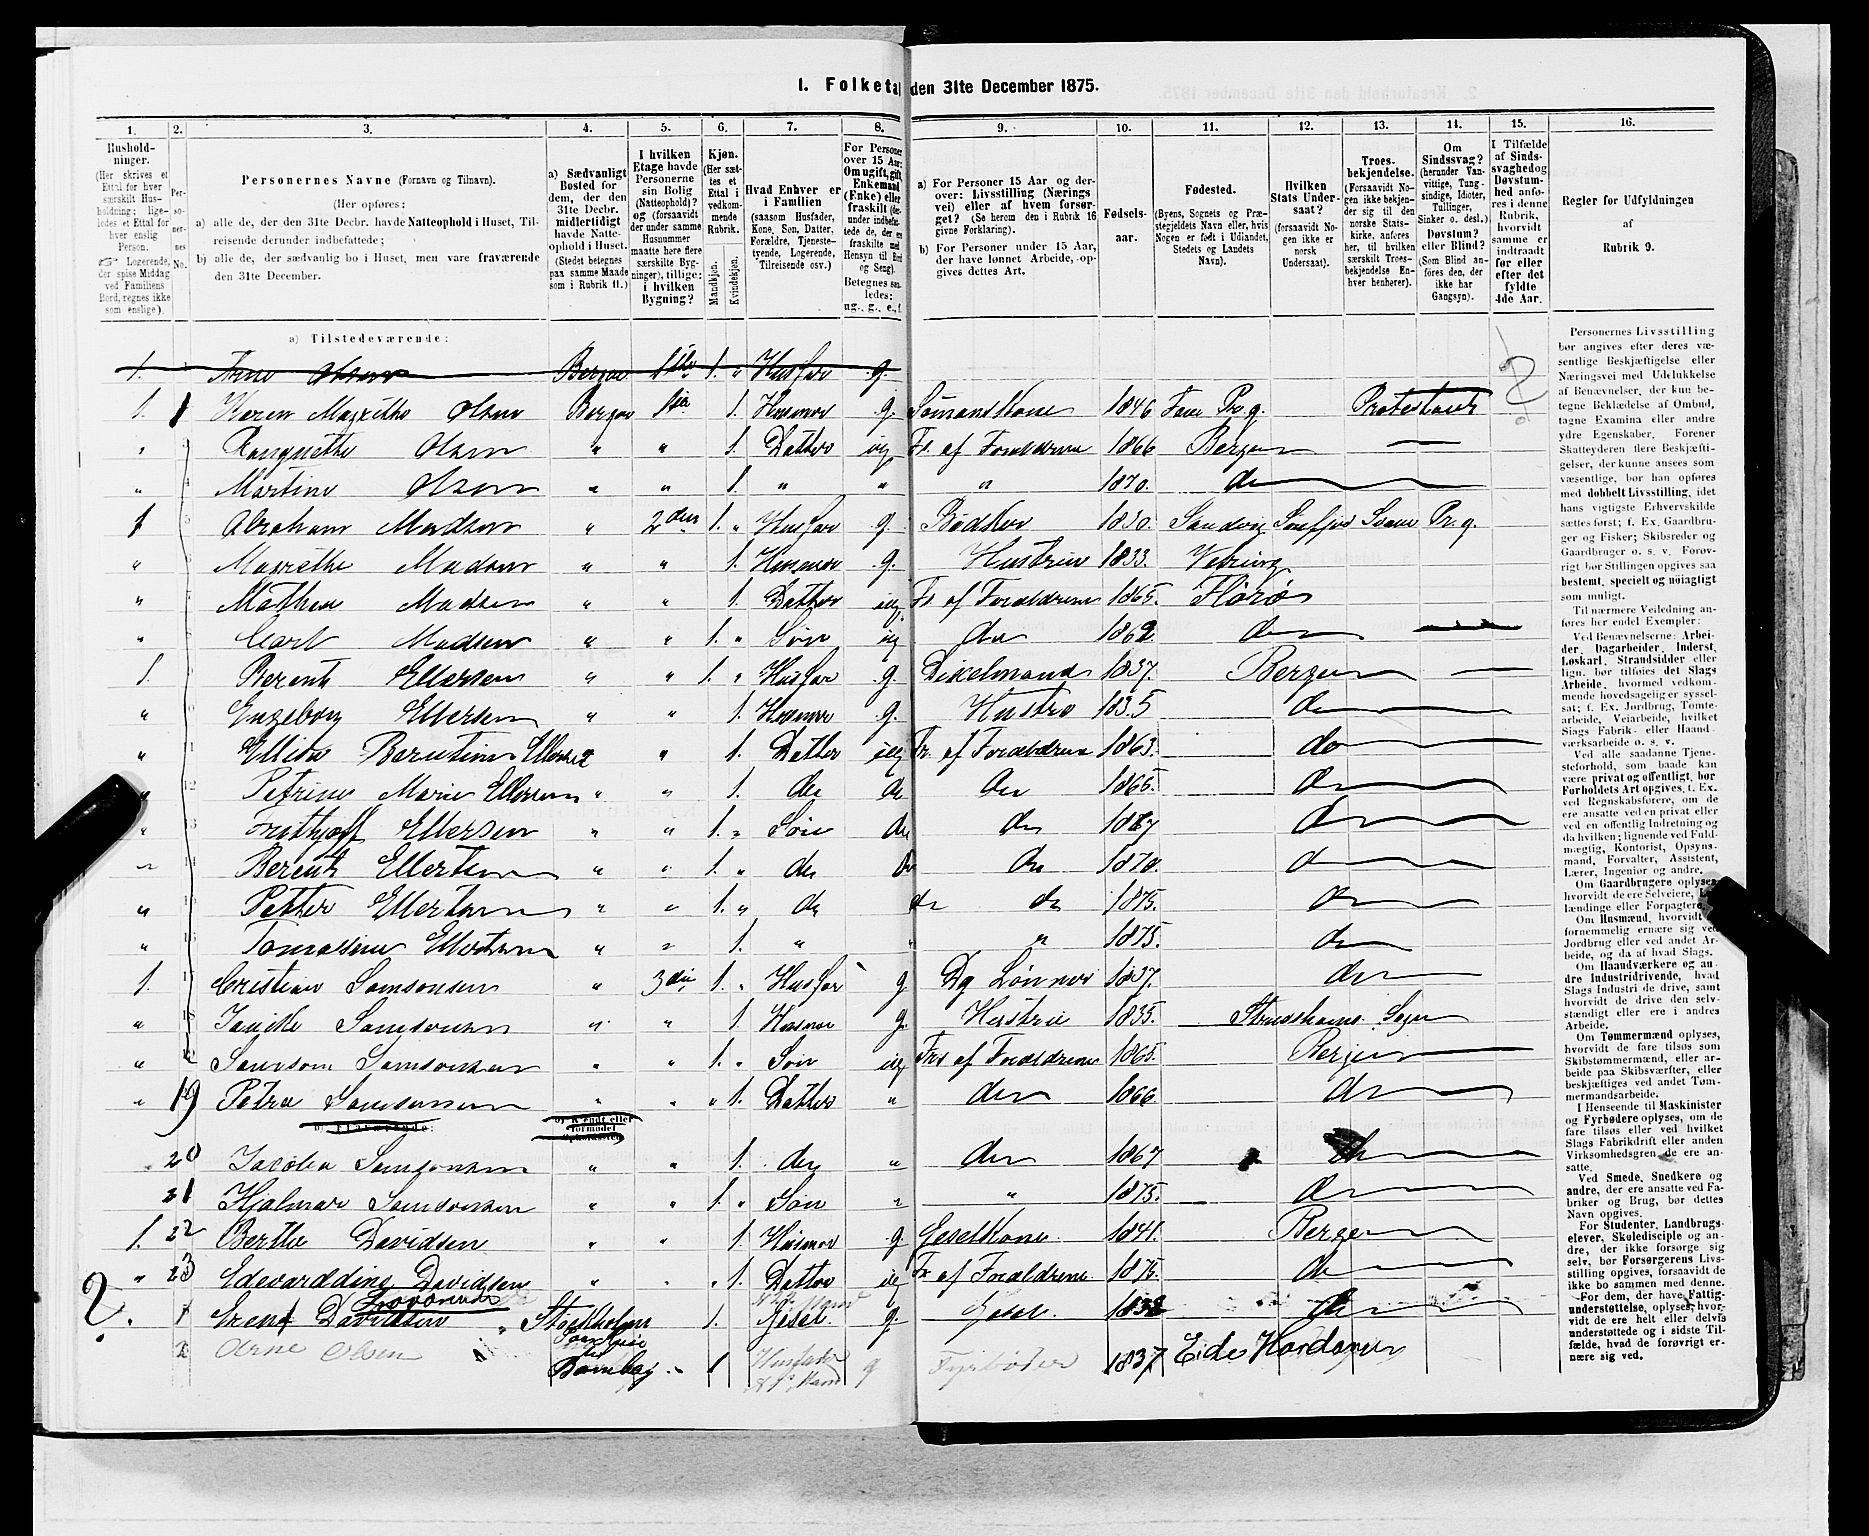 1. Folketal den 31te December 1875.
1. 2. 3. 4. 5. 6. 7. 8. 9. 10. 11. 12. 13. 14. 15. 16.
Hushold-
ninger.
(Her skrives et
Ettal for hver
særskilt Hus-
holdning; lige-
ledes et Ettal for
hver enslig
Person.
☞ Logerende,
der spise Middag
ved Familiens
Bord, regnes ikke
som enslige).
Per-
so-
ner-
nes
No.
Personernes Navne (Fornavn og Tilnavn).
(Her opføres:
a) alle de, der den 31te Decbr. havde Natteophold i Huset, Til-
reisende derunder indbefattede;
b) alle de, der sædvanlig bo i Huset, men vare fraværende
den 31te December.
a) Sædvanligt
Bosted for
dem, der den
31te Decbr.
midlertidigt
havde Natte-
ophold i Huset.
(Stedet betegnes
paa samme Maade
som i Rubrik 11.)
I hvilken
Etage havde
Personerne
sin Bolig
(Natteophold)?
og (forsaavidt
der under samme
Husnummer
maatte høre flere
særskilte Byg-
ninger), tillige:
i hvilken
Bygning?
Kjøn.
(Her sæt-
tes et
Ettal i
vedkom-
mende
Rubrik.
Mandkjøn.
Kvindekjøn.
Hvad Enhver er
i Familien
(saasom Husfader,
Kone, Søn, Datter,
Forældre, Tjeneste-
tyende, Logerende,
Tilreisende osv.)
For Personer
over 15 Aar:
Om ugift, gift,
Enkemand
(Enke) eller
fraskilt (her-
under indbefat-
tede de, der ere
fraskilte med
Hensyn til Bord
og Seng).
Betegnes saa-
ledes:
ug., g., e., f.
a) For Personer 15 Aar og der-
over: Livsstilling (Nærings-
vei) eller af hvem forsør-
get? (Se herom den i Rubrik 16
givne Forklaring).
b) For Personer under 15 Aar,
der have lønnet Arbeide, op-
gives dettes Art.
Fødsels-
aar.
Fødested.
(Byens, Sognets og Præ-
stegjeldets Navn eller, hvis
Nogen er født i Udlandet,
Stedets og Landets
Navn).
Hvilken
Stats Under-
saat?
(forsaavidt No-
gen ikke er
norsk
Undersaat).
Troes-
bekjendelse.
(Forsaavidt No-
gen ikke bekjen-
der sig til den
norske Stats-
kirke, anføres
her, til hvilken
særskilt Troes-
bekjendelse En-
hver henhører).
Om
Sindssvag?
(herunder Van-
vittige, Tung-
sindige, Idioter,
Tullinger,
Sinker o. desl.)
Døvstum?
eller Blind?
(Som Blind an-
føres den, der
ikke har
Gangsyn).
I Tilfælde
af Sinds-
svaghed og
Døvstum-
hed anfø-
res i denne
Rubrik,
hvorvidt
samme er
indtraadt
før eller
efter det
fyldte
4de Aar.
Regler for Udfyldningen
af
Rubrik 9.
a) Tilstedeværende:
1. Arne Olsen Bergen 1ste 1. " Husfar g.
1. 1 Karen Magrethe Olsen Bergen 1ste 1. Husmor g. Sömandskone 1846 Fane Pr. g. Protestant
" Olsen " " 1. Datter ug Fr. af Foraldrene 1866 Bergen
" Martine Olsen " " 1. " " " 1870. do
1 Abraham Madsen " 2den 1. " Husfar g. Bödker 1830. Sandvig Pr. g.
" Magrethe Madsen " " 1. Husmor g. Hustru 1833.
" Mathea Madsen " " 1. Datter ug. Fr. af Foraldrene 1865. Florö
" Carl Madsen " " 1. " Sön ug do 1862. do
1. Berent Ellersen " " 1. " Husfar g Dikelmand 1837. Bergen
" Engeborg Ellersen " " 1. Husmor g. Hustro 1835 do
" Berntine Ellersen " 1. Datter ug Fr. af Foraldrene 1863. do
" Petrine Marie Ellersen " " 1. do do do 1865. do
" Frithjoff Ellersen " " 1. " Sön do do 1867 do
" Berent Ellertsen " " 1. " do do do 1870. do
" Petter Ellertsen " " 1. " do do do 1875. do
" Tomasine Ellertsen " " 1. " " " 1875. do
1. Cristian Samsonsen " 3die 1. " Husfar g 1837. do
" Samsonsen " " 1 Husmor g. Hustru 1835. Strudshavns Sogn
" Samson Samsonsen " " 1. " Sön ug For af Foraldrene 1865. Bergen
" 19 Petra Samsonsen " " " 1. Datter " do 1866. do
b) Fraværende:
b) Kjendt eller
formodet
Opholdssted
20 Jacobea Samsonsen " " 1. do " do 1867 do
21 Hjalmar Samsonsen " " 1. " Sön " " 1875. do
1. 22 Berthe Davidsen " " 1. Husmor g Geselkone 1841. Bergen
" 23 Edevardine Davidsen " " " 1. Datter ug Fr af Foraldrene 1875. do
Fraværende
1 Davidsen " Stockholm 1. Gesel. g. Gesel. 1832 do
2 Arne Olsen Bombay " 1 Husfader g Fyrbøder 1837 Eide Hardanger
Personernes Livsstilling
bør angives efter deres væ-
sentlige Beskjæftigelse eller
Næringsvei med Udelukkelse
af Benævnelser, der kun be-
tegne Beklædelse af Ombud,
tagne Examina eller andre
ydre Egenskaber. Forener
Skatteyderen flere Beskjæfti-
gelser, der kunne ansees som
væsentlige, bør han opføres
med dobbelt Livsstilling, idet
hans vigtigste Erhvervskilde
sættes først; f. Ex. Gaardbru-
ger og Fisker; Skibsreder og
Gaardbruger o. s. v. Forøv-
rigt bør Stillingen opgives saa
bestemt, specielt og nøiagtigt
som muligt.
Til nærmere Veiledning an-
føres her endel Exempler:
Ved Benævnelserne: Arbei-
der, Dagarbeider, Inderst,
Løskarl, Strandsidder eller
lign. bør tilføies det Slags
Arbeide, hvormed vedkom-
mende hovedsagelig er syssel-
sat; f. Ex. Jordbrug, Tømte-
arbeide, Veiarbeide, hvilket
Slags Fabrik- eller Haand-
værksarbeide o. s. v.
Ved alle saadanne Tjene-
steforhold, som baade kan
være privat og offentligt, bør
Forholdets Art opgives, f. Ex.
ved Regnskabsførere, om de
ere ansatte ved en privat eller
ved en offentlig Indretning og
da hvilken; lignende ved Fuld-
mægtig, Kontorist, Opsyns-
mand, Forvalter, Assistent,
Lærer, Ingeniør og andre.
Om Gaardbrugere oplyses,
hvorvidt de ere Selveiere, Lei-
lændinge eller Forpagtere.
Om Husmænd, hvorvidt de
fornemmelig ernære sig ved
Jordbrug eller ved andet Ar-
beide, og da af hvad Slags.
Om Haandværkere og an-
dre Industridrivende, hvad
Slags Industri de drive, samt
hvorvidt de drive den selv-
stændigt eller ere i andres
Arbeide.
Om Tømmermænd oplyses,
hvorvidt de fare tilsøs som
Skibstømmermænd, eller ar-
beide paa Skibsværfter, eller
beskjæftiges ved andet Tøm-
mermandsarbeide.
I Henseende til Maskinister
og Fyrbødere oplyses, om de
fare tilsøs eller ved hvilket
Slags Fabrikdrift eller anden
Virksomhedsgren de ere an-
satte.
Ved Smede, Snedkere og
andre, der ere ansatte ved Fa-
briker og Brug, bør dettes
Navn opgives.
For Studenter, Landbrugs-
elever, Skoledisciple og an-
dre, der ikke forsørge sig
selv, bør Forsørgerens Livs-
stilling opgives, forsaavidt de
ikke bo sammen med denne.
For dem, der have Fattig-
understøttelse, oplyses, hvor-
vidt de ere helt eller delvis
understøttede og i sidste Til-
fælde, hvad de forøvrigt er-
nære sig ved.